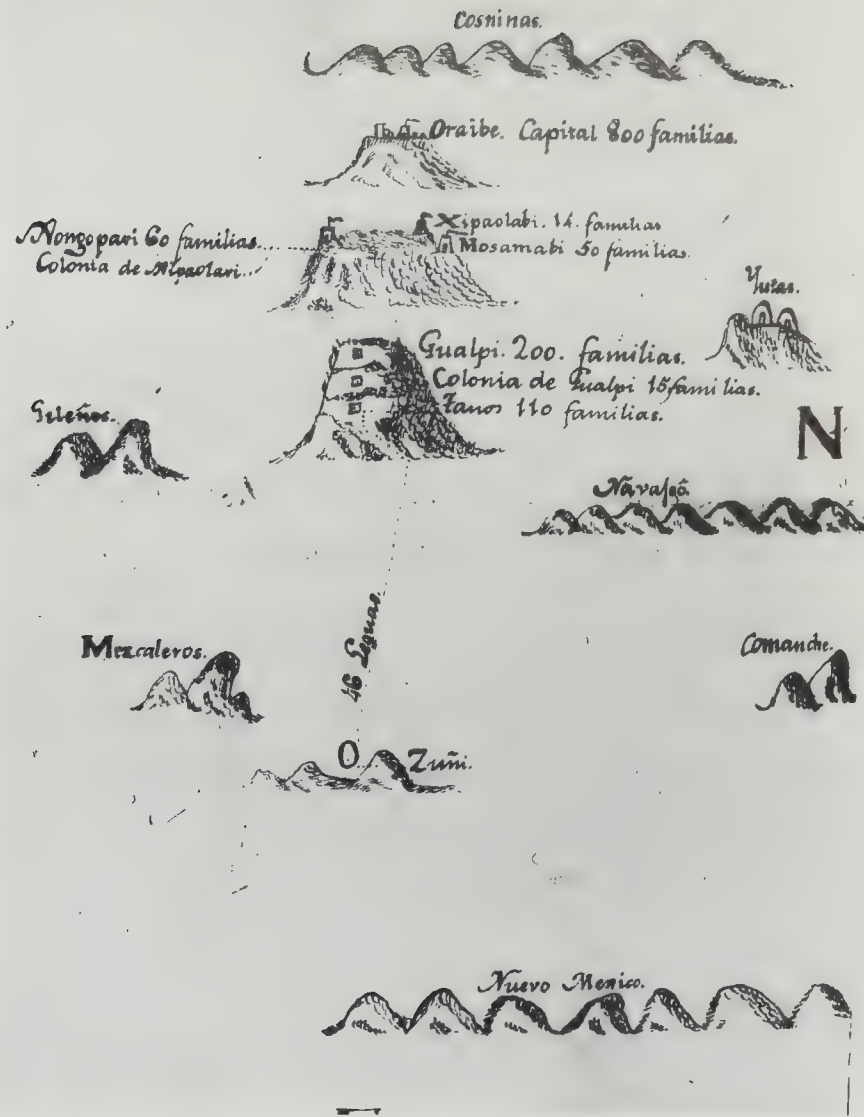 Cosninas.
Oraibe. Capital 800 familias.
Xipaolabi. 14. familias
Mosamabi 50 familias.
Mongopari 60 familias.
Colonia de Mipaolari.
Yutas.
Gualpi. 200. familias.
Colonia de Gualpi 15 familias.
Tanos 110 familias.
Gileños.
N
Navajoô.
46 Leguas.
Mezcaleros.
Comanche.
O
Zuñi.
Nuevo Mexico.